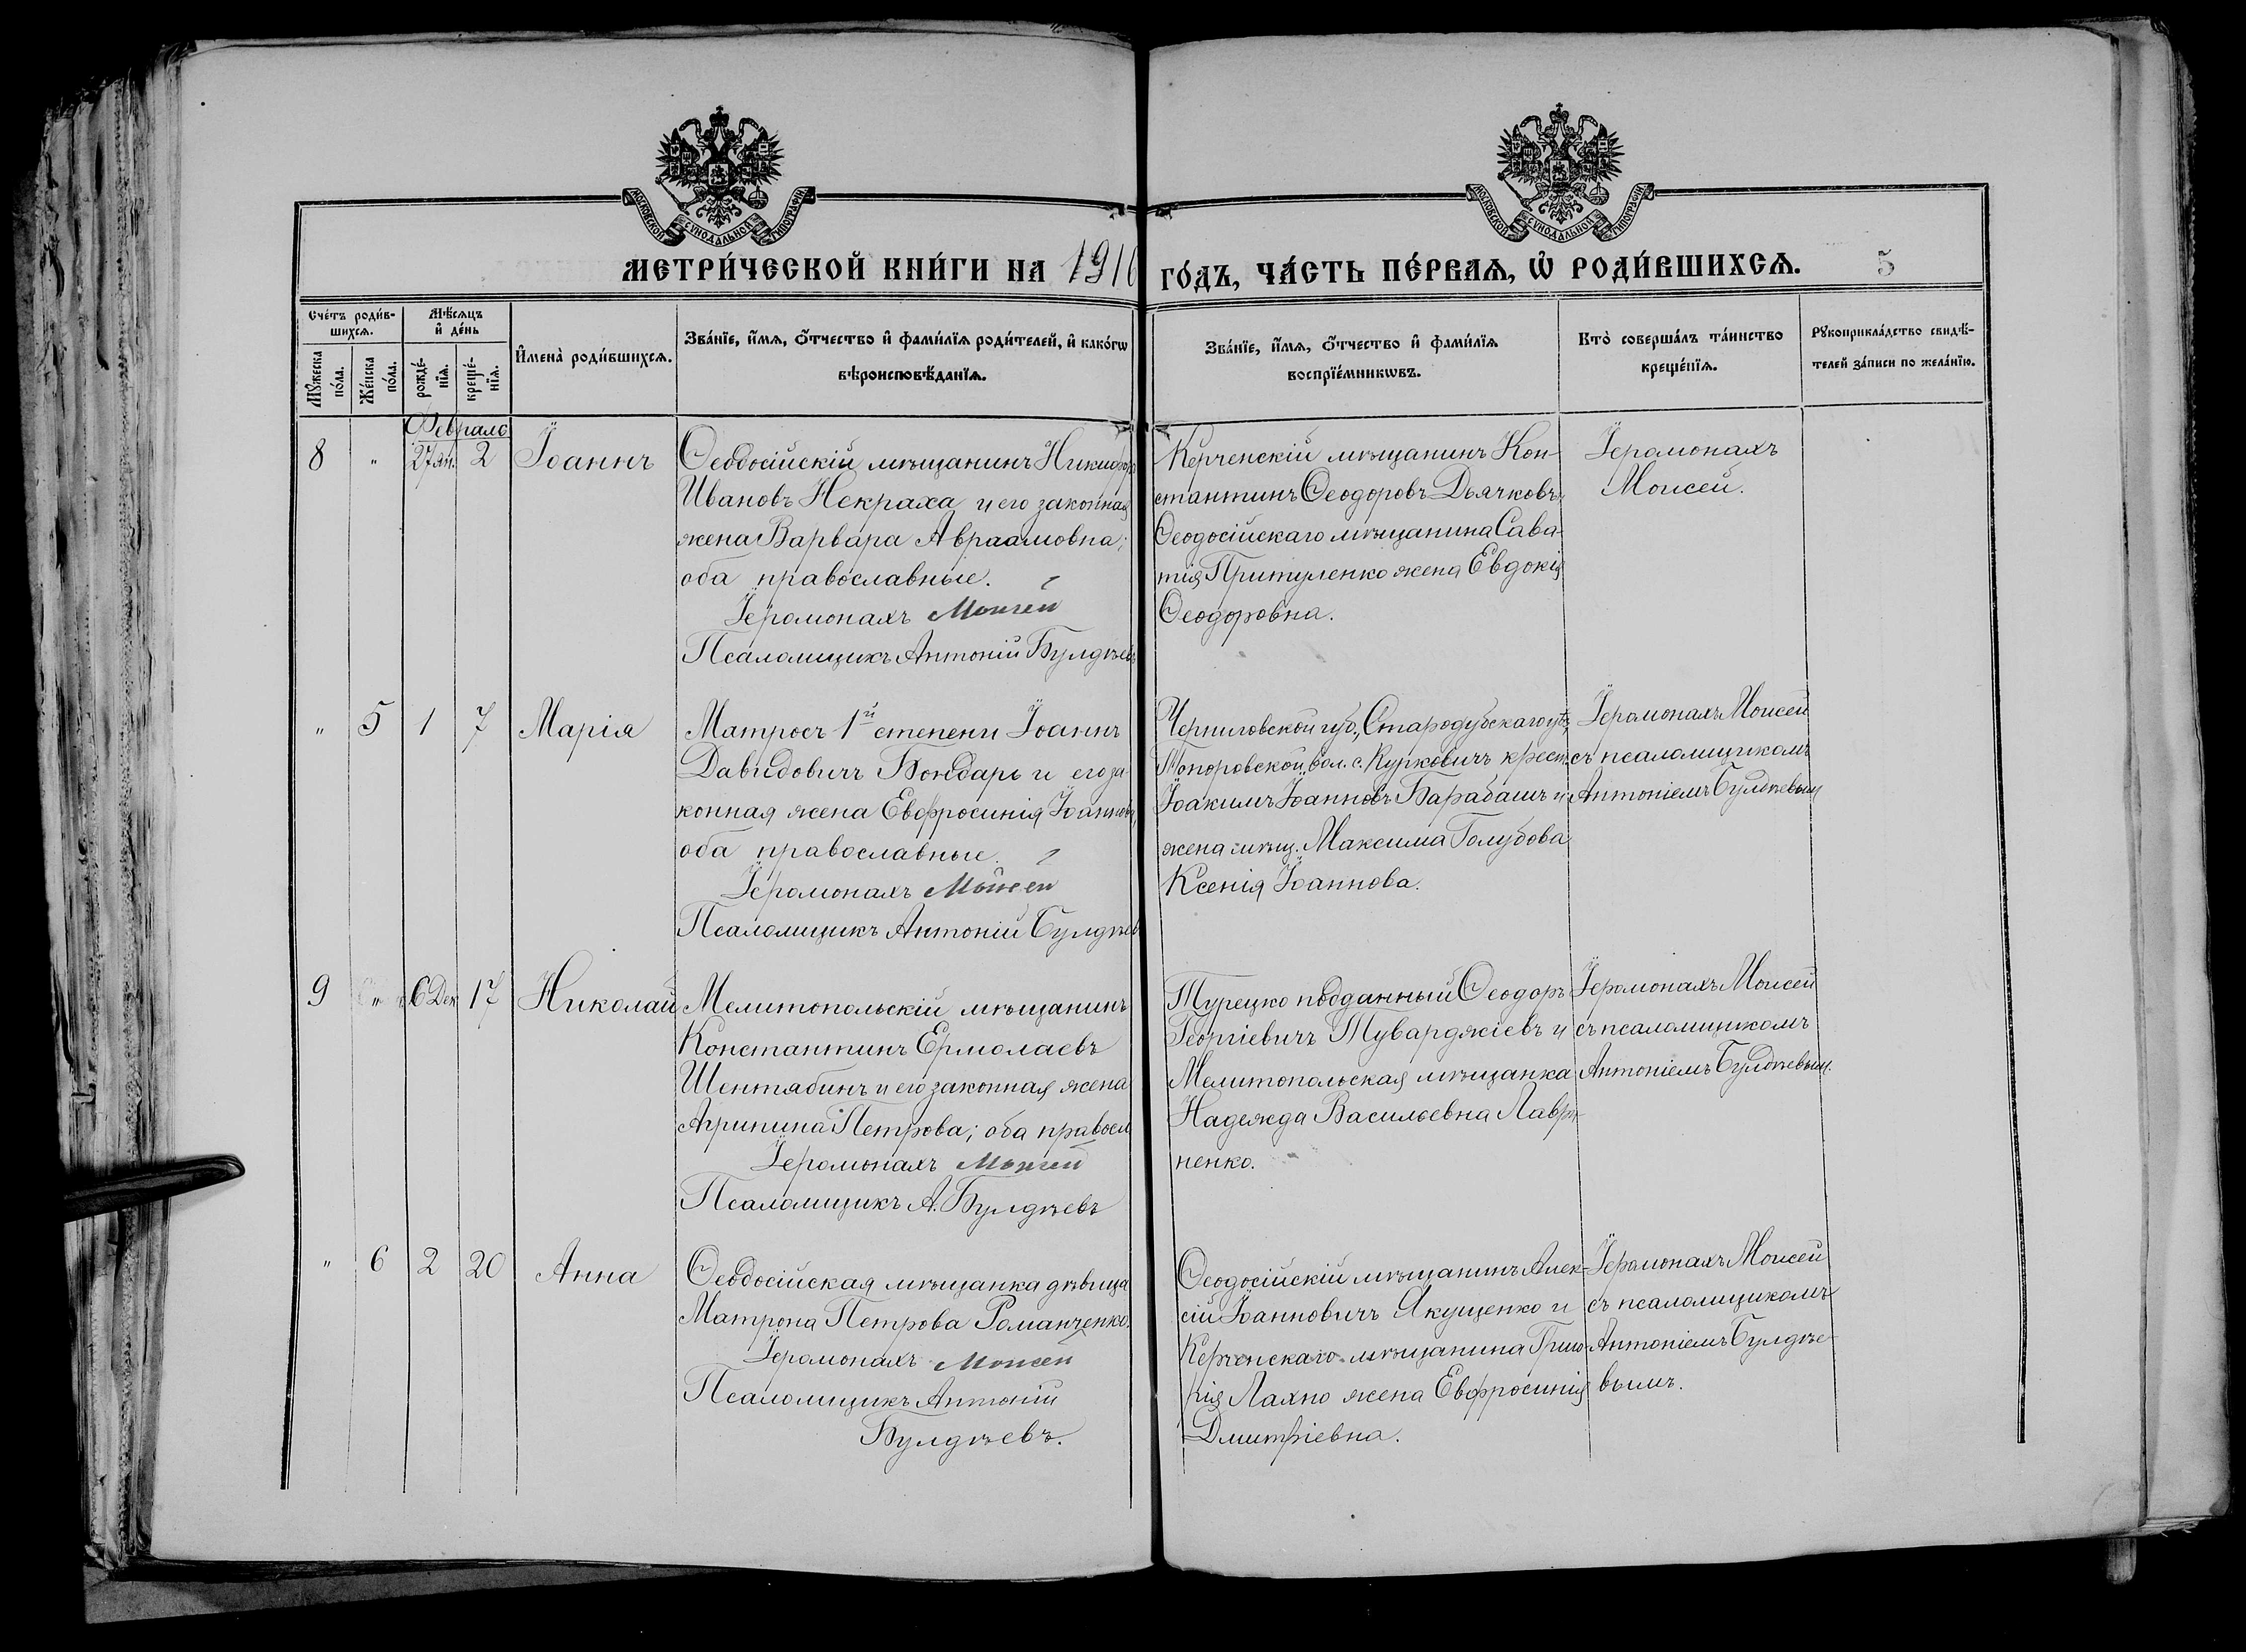 МОСКОВСКОЙ СѴНОДАЛЬНОЙ ТИПОГРАФІИ
МОСКОВСКОЙ СѴНОДАЛЬНОЙ ТИПОГРАФІИ
МЕТРИ́ЧЕСКОЙ КНИ́ГИ НА 1916 ГО́ДЪ, ЧА́СТЬ ПЕ́РВАѦ, Ѡ҆ РОДИ́ВШИХСѦ. 5
Сче́тъ роди́в-
шихсѧ.
Мѣ́сѧцъ
и҆ де́нь
Мꙋ́жеска по́ла.
Же́нска по́ла.
рожде́-
нїѧ.
креще́-
нїѧ.
И҆мена̀ роди́вшихсѧ.
Зва́нїе, и҆́мѧ, ѻ҆́тчество и҆ фами́лїѧ роди́телей, и҆ како́гѡ
вѣроисповѣ́данїѧ.
Зва́нїе, и҆́мѧ, ѻ҆́тчество и҆ фами́лїѧ
воспрїе́мникѡвъ.
Кто̀ соверша́лъ та́инство
креще́нїѧ.
Рꙋкоприкла́дство свидѣ́-
телей за́писи по жела́нїю.
Февраль
8 " 27 Ян. 2 Іоаннъ
Ѳеодосійскій мѣщанинъ Никифоръ
Ивановъ Некраха и его законная
жена Варвара Авраамовна;
оба православные.
Іеромонахъ Моисей
Псаломщикъ Антоній Булдѣевъ
Керченскій мѣщанинъ Кон-
стантинъ Ѳеодоровъ Дьячковъ и
Ѳеодосійскаго мѣщанина Сава-
тія Притуленко жена Евдокія
Ѳеодоровна.
Іеромонахъ
Моисей.
" 5 1 7 Марія
Матросъ 1й степени Іоаннъ
Давидовичъ Бондарь и его за-
конная жена Евфросинія Іоаннова,
оба православные.
Іеромонахъ Моисей
Псаломщикъ Антоній Булдѣевъ
Черниговской губ., Стародубскаго у.,
Топоровской вол. с. Курковичъ крест.
Іоакимъ Іоанновъ Барабашъ и
жена мѣщ. Максима Голубова
Ксенія Іоаннова.
Іеромонахъ Моисей
съ псаломщикомъ
Антоніемъ Булдѣевым
9 " 6 Дек 17 Николай
Мелитопольскій мѣщанинъ
Константинъ Ермолаевъ
Шентябинъ и его законная жена
Агрипина Петрова; оба правосл
Іеромонахъ Моисей
Псаломщикъ А. Булдѣевъ
Турецко подданный Ѳеодоръ
Георгіевичъ Туварджіевъ и
Мелитопольская мѣщанка
Надежда Васильевна Лаври-
ненко.
Іеромонахъ Моисей
съ псаломщикомъ
Антоніемъ Булдѣевым.
" 6 2 20 Анна
Ѳеодосійская мѣщанка дѣвица
Матрона Петрова Романченко.
Іеромонахъ Моисей
Псаломщикъ Антоній
Булдѣевъ.
Ѳеодосійскій мѣщанинъ Алек-
сій Іоанновичъ Якущенко и
Керченскаго мѣщанина
Лахно жена Евфросинія
Дмитріевна.
Іеромонахъ Моисей
съ псаломщикомъ
Антоніемъ Булдѣе-
вымъ.